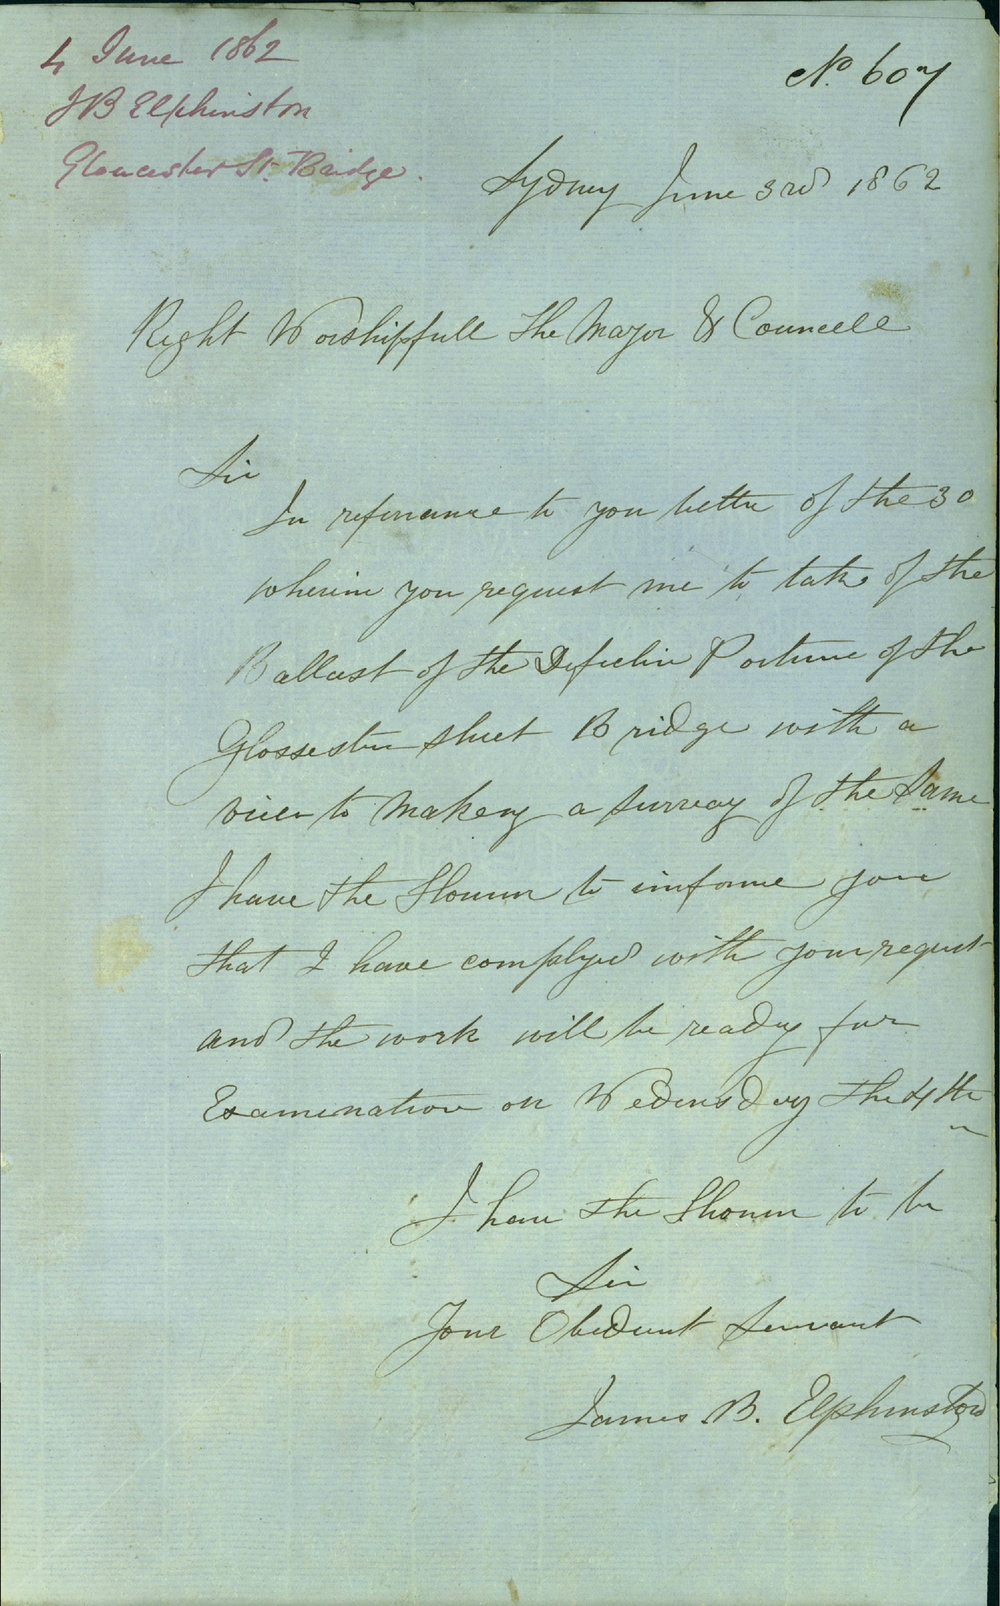 4 June 1862
J B Elphinston
Gloucester St. Bridge.
No. 607
Sydney June 3rd 1862
Right Worshipfull the Mayor & Councell
Sir
In referance to you letter of the 30
wherin you request me to take of the
Ballast of the Defective Portune of the
Glossester street Bridge with a
view to Makeng a survay of the Same
I have the Honour to imforme you
that I have complyed with your request
and the work will be ready for
Examenation on Wedensday the 4th
I have the Honour to be
Sir
Your Obedient Servant
James. B. Elphinston